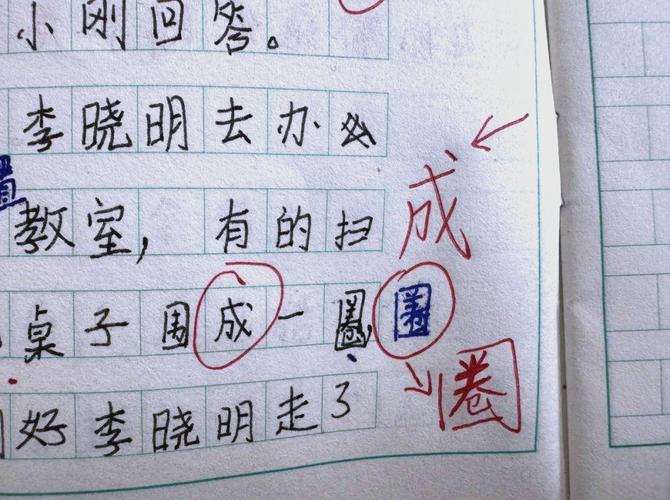 小刚回答。
李晓明去办公
教室，有的扫 成
桌子围成一圈 圈
好李晓明走了 圈